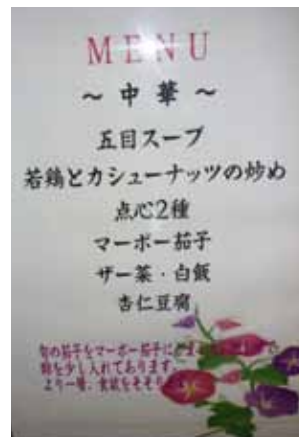 MENU
～中華～
五目スープ
若鶏とカシューナッツの炒め
点心2種
マーボー茄子
ザー菜・白飯
杏仁豆腐
旬の茄子をマーボー茄子に
酢を少し入れてあります。
より一層、食欲をそそり